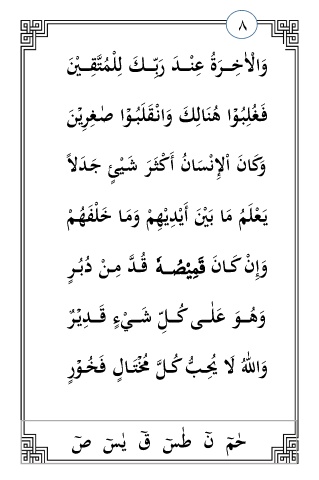 ٨
وَالْاٰخِـرَةُ عِنْـدَ رَبِّـكَ لِلْمُتَّقِـيْنَ
فَغُلِبُوْا هُنَالِكَ وَانْقَلَبُوْا صٰغِرِيْنَ
وَكَانَ الْإِنْسَانُ أَكْثَرَ شَيْئٍ جَدَلاً
يَعْلَمُ مَا بَيْنَ أَيْدِيْهِمْ وَمَا خَلْفَهُمْ
وَإِنْ كَـانَ قَمِيْصُـهٗ قُـدَّ مِـنْ دُبُـرٍ
وَهُـوَ عَلٰـى كُـلِّ شَـيْءٍ قَـدِيْرٌ
وَاللهُ لَا يُحِبُّ كُـلَّ مُخْتَـالٍ فَخُـوْرٍ
حٰمٓ نٓ طٰسٓ قٓ يٰسٓ صٓ